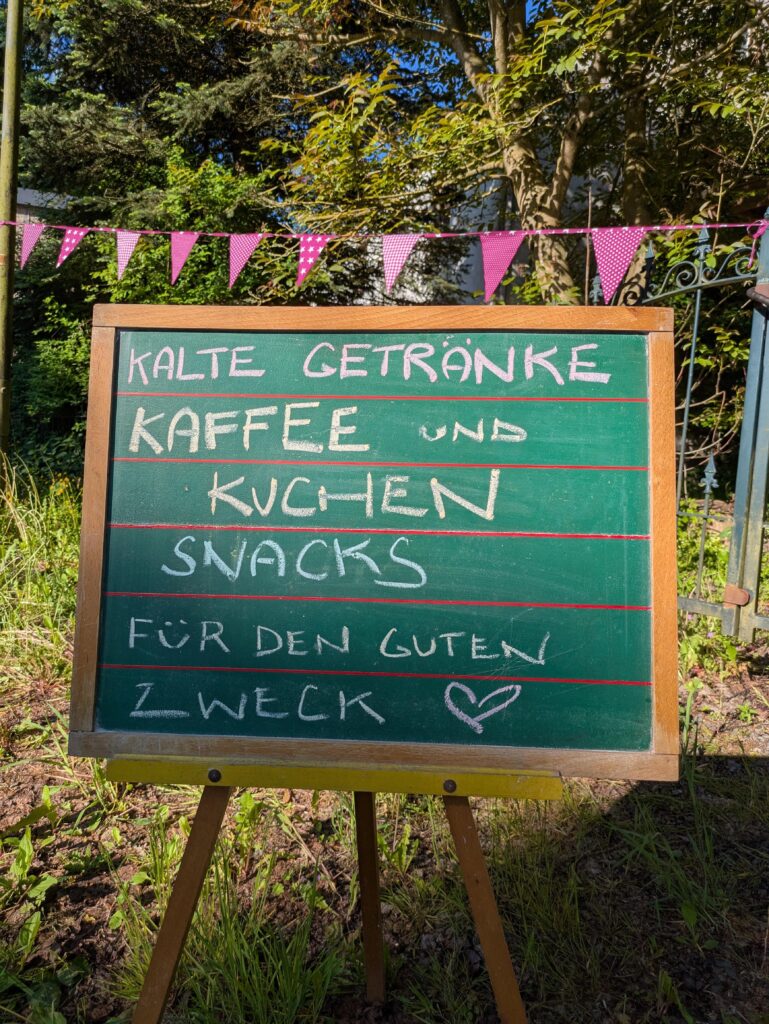 KALTE GETRÄNKE
KAFFEE UND
KUCHEN
SNACKS
FÜR DEN GUTEN
ZWECK ♡